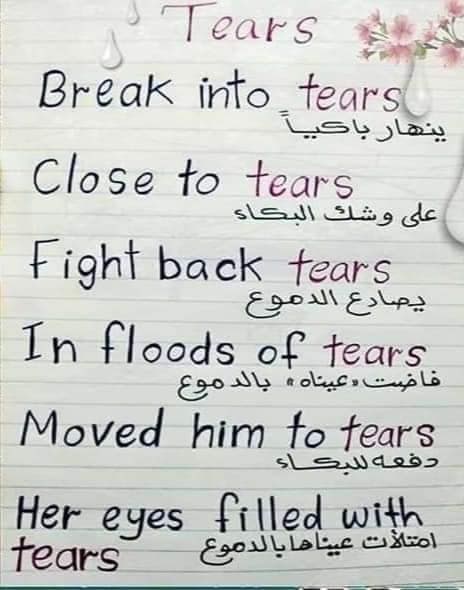 Tears
Break into tears
ينهار باكياً
Close to tears
على وشك البكاء
Fight back tears
يصارع الدموع
In floods of tears
فاضت «عيناه» بالدموع
Moved him to tears
دفعه للبكاء
Her eyes filled with
tears
امتلأت عيناها بالدموع